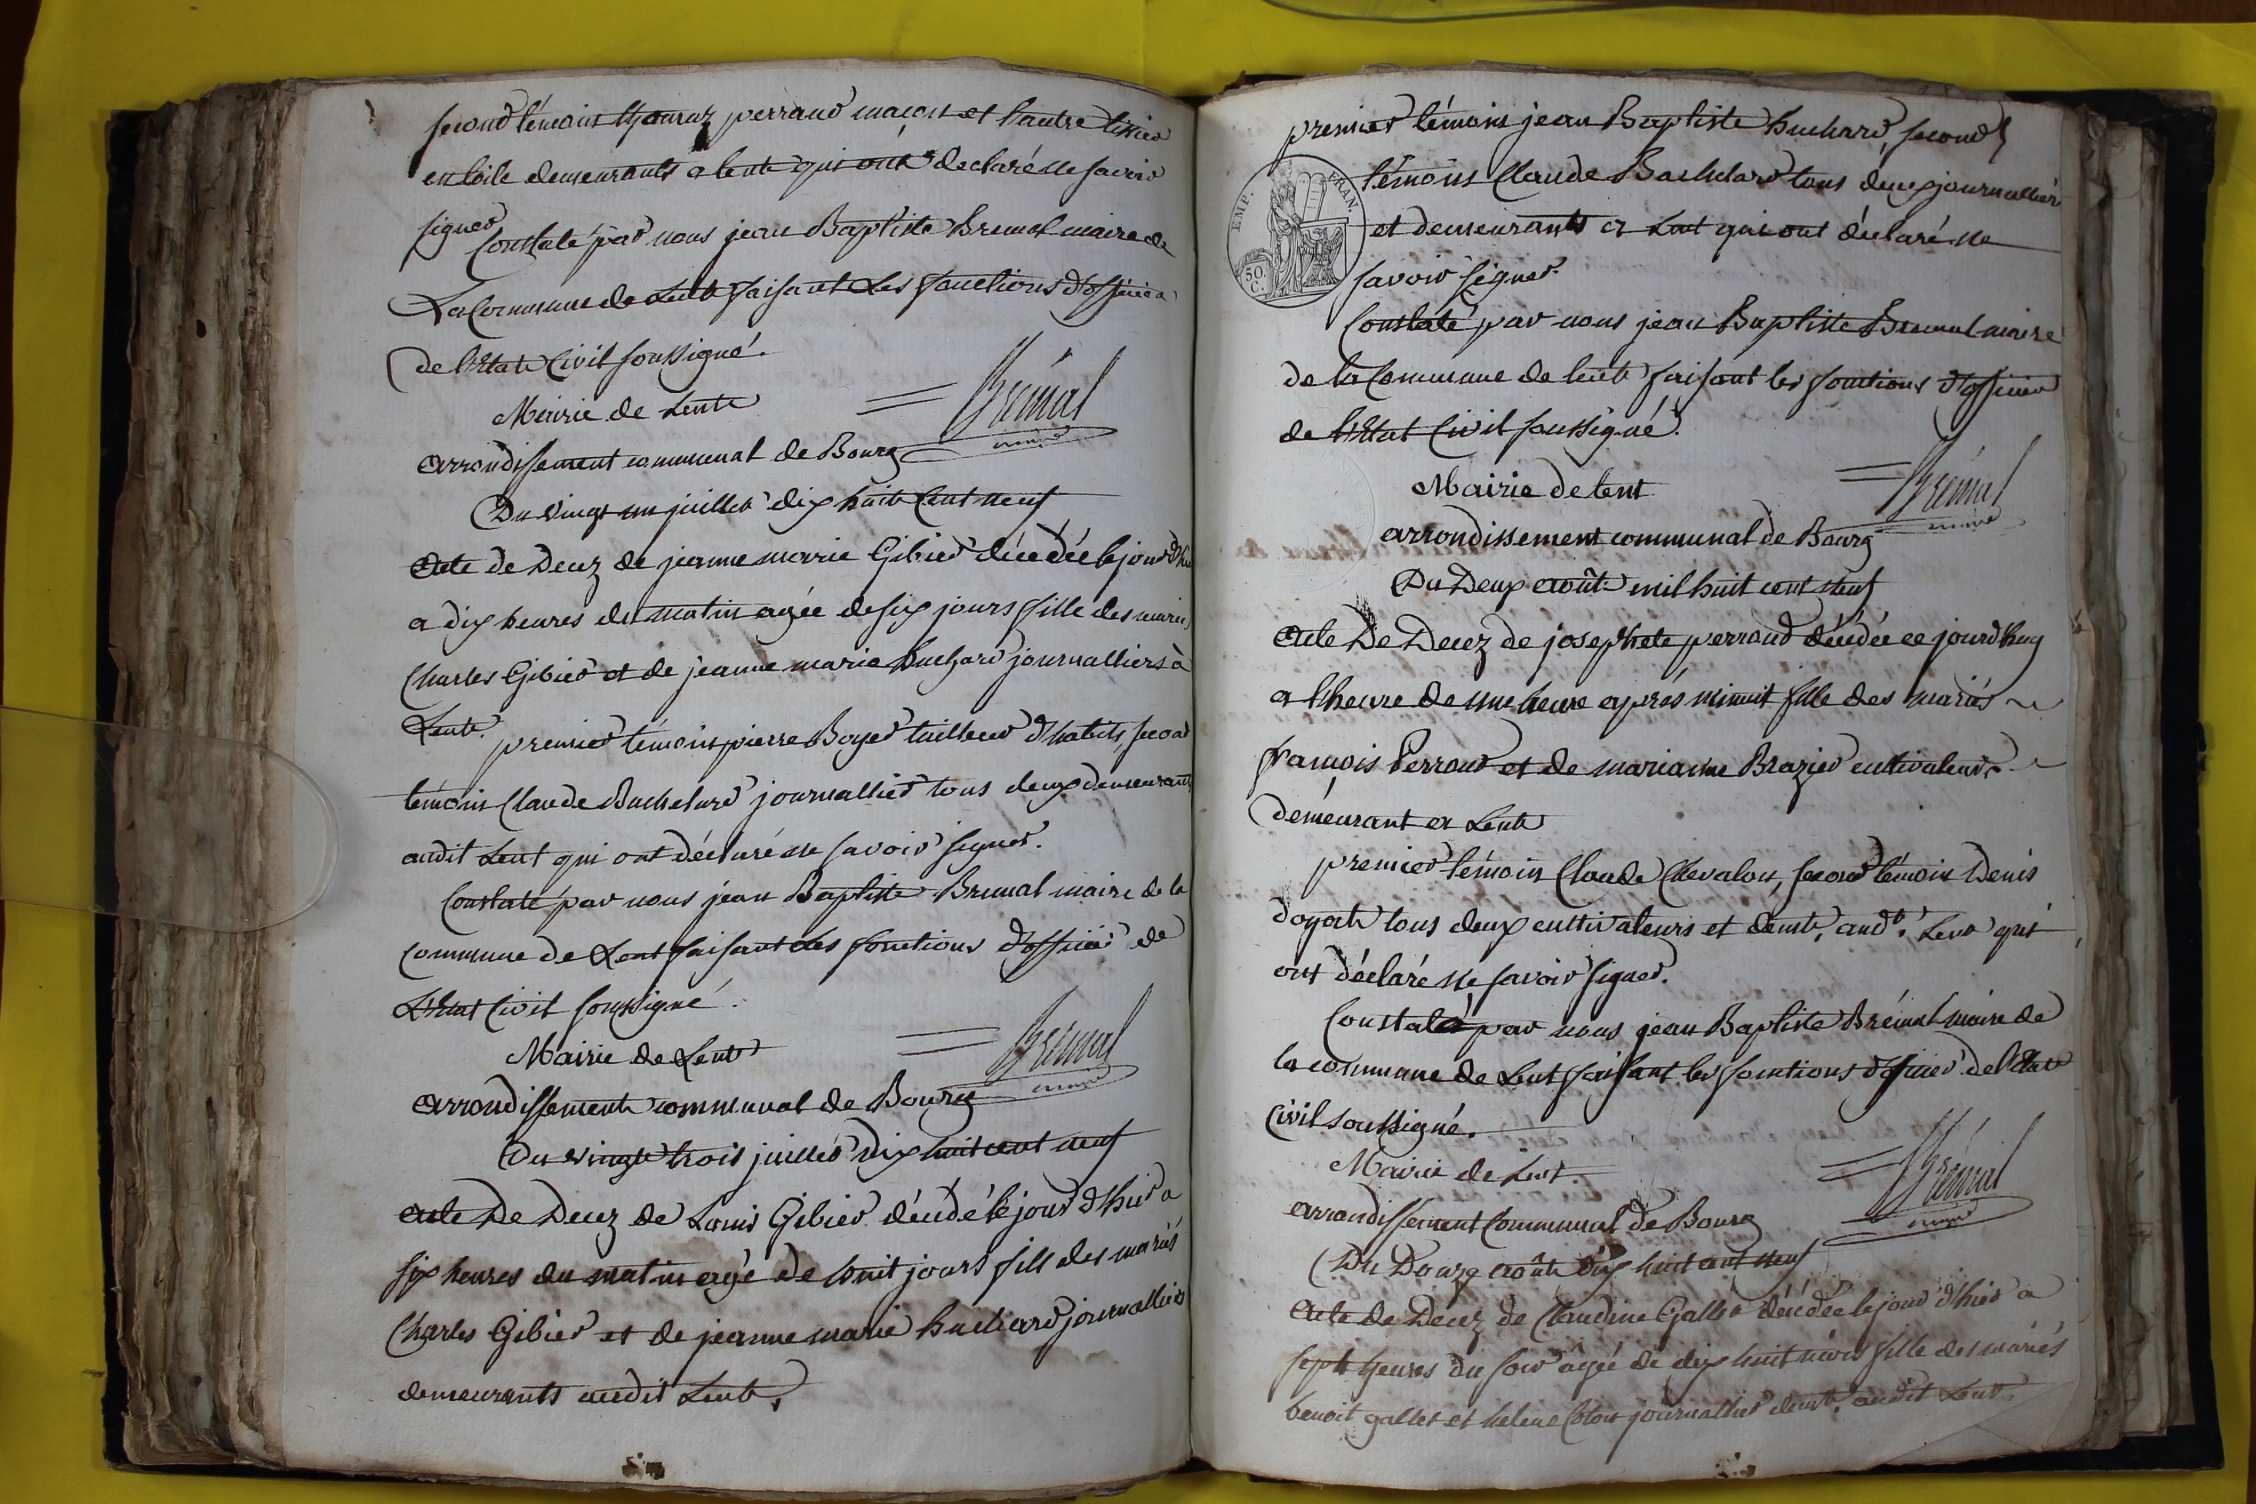 second témoin thomas perraud maçon et l'autre tissier
en toile demeurants a lent qui ont declaré ne savoir
signer
Constaté par nous jean Baptiste Brémal maire de
La Commune de Lent faisant Les fonctions d'officier
de l'Etat Civil soussigné.
Brémal
maire
Mairie de Lent
arrondissement communal de Bourg
Du vingt un juillet dix huit Cent neuf
acte de Decez de jeanne marie Gibier décédée le jour d'hier
a dix heures du matin agée de six jours fille des mariés
Charles Gibier et de jeanne marie huchard journalliers à
Lent.
premier témoin pierre Boyer tailleur d'habits, second
témoin Claude Bachelard journallier tous deux demeurants
audit Lent qui ont déclaré ne savoir signer.
Constaté par nous jean Baptiste Brémal maire de la
commune de Lent faisant Les fonctions d'officier de
L'Etat Civil soussigné.
Brémal
maire
Mairie de Lent
arrondissement communal de Bourg
Du vingt trois juillet dix huit cent neuf
acte De Decez de Louis Gibier décédé le jour d'hier a
six heures du matin agé de huit jours fils des mariés
Charles Gibier et de jeanne marie huchard journalliers
demeurants audit Lent.
premier témoin jean Baptiste huchard, second
témoin Claude Bachelard tous deux journallier
et demeurants a Lent qui ont déclaré ne
savoir signer.
EMP. FRAN.
50.
C.
Constaté par nous jean Baptiste Brémal maire
de la Commune de lent faisant les fonctions d'officier
de l'Etat Civil soussigné.
Brémal
maire
Mairie de lent
arrondissement communal de Bourg
Du Deux août mil huit cent neuf
acte De Decez de josephete perraud décédée ce jourd'huy
a l'heure de une heure après minuit fille des mariés
françois Perraud et de marianne Brazier cultivateurs
demeurant a Lent
premier témoin Claude Chevalon, second témoin Denis
doyat tous deux cultivateurs et demt. audt. Lent qui
ont déclaré ne savoir signer.
Constaté par nous jean Baptiste Brémal maire de
la commune de Lent faisant les fonctions d'officier de l'Etat
Civil soussigné.
Brémal
maire
Mairie de Lent.
arrondissement Communal de Bourg
Du Douze août dix huit cent neuf
acte de Décez de Claudine Gallet décédée le jour d'hier a
sept heures du soir âgée de dix huit mois fille des mariés
benoit gallet et helene Colon journallier demt. audit Lent.